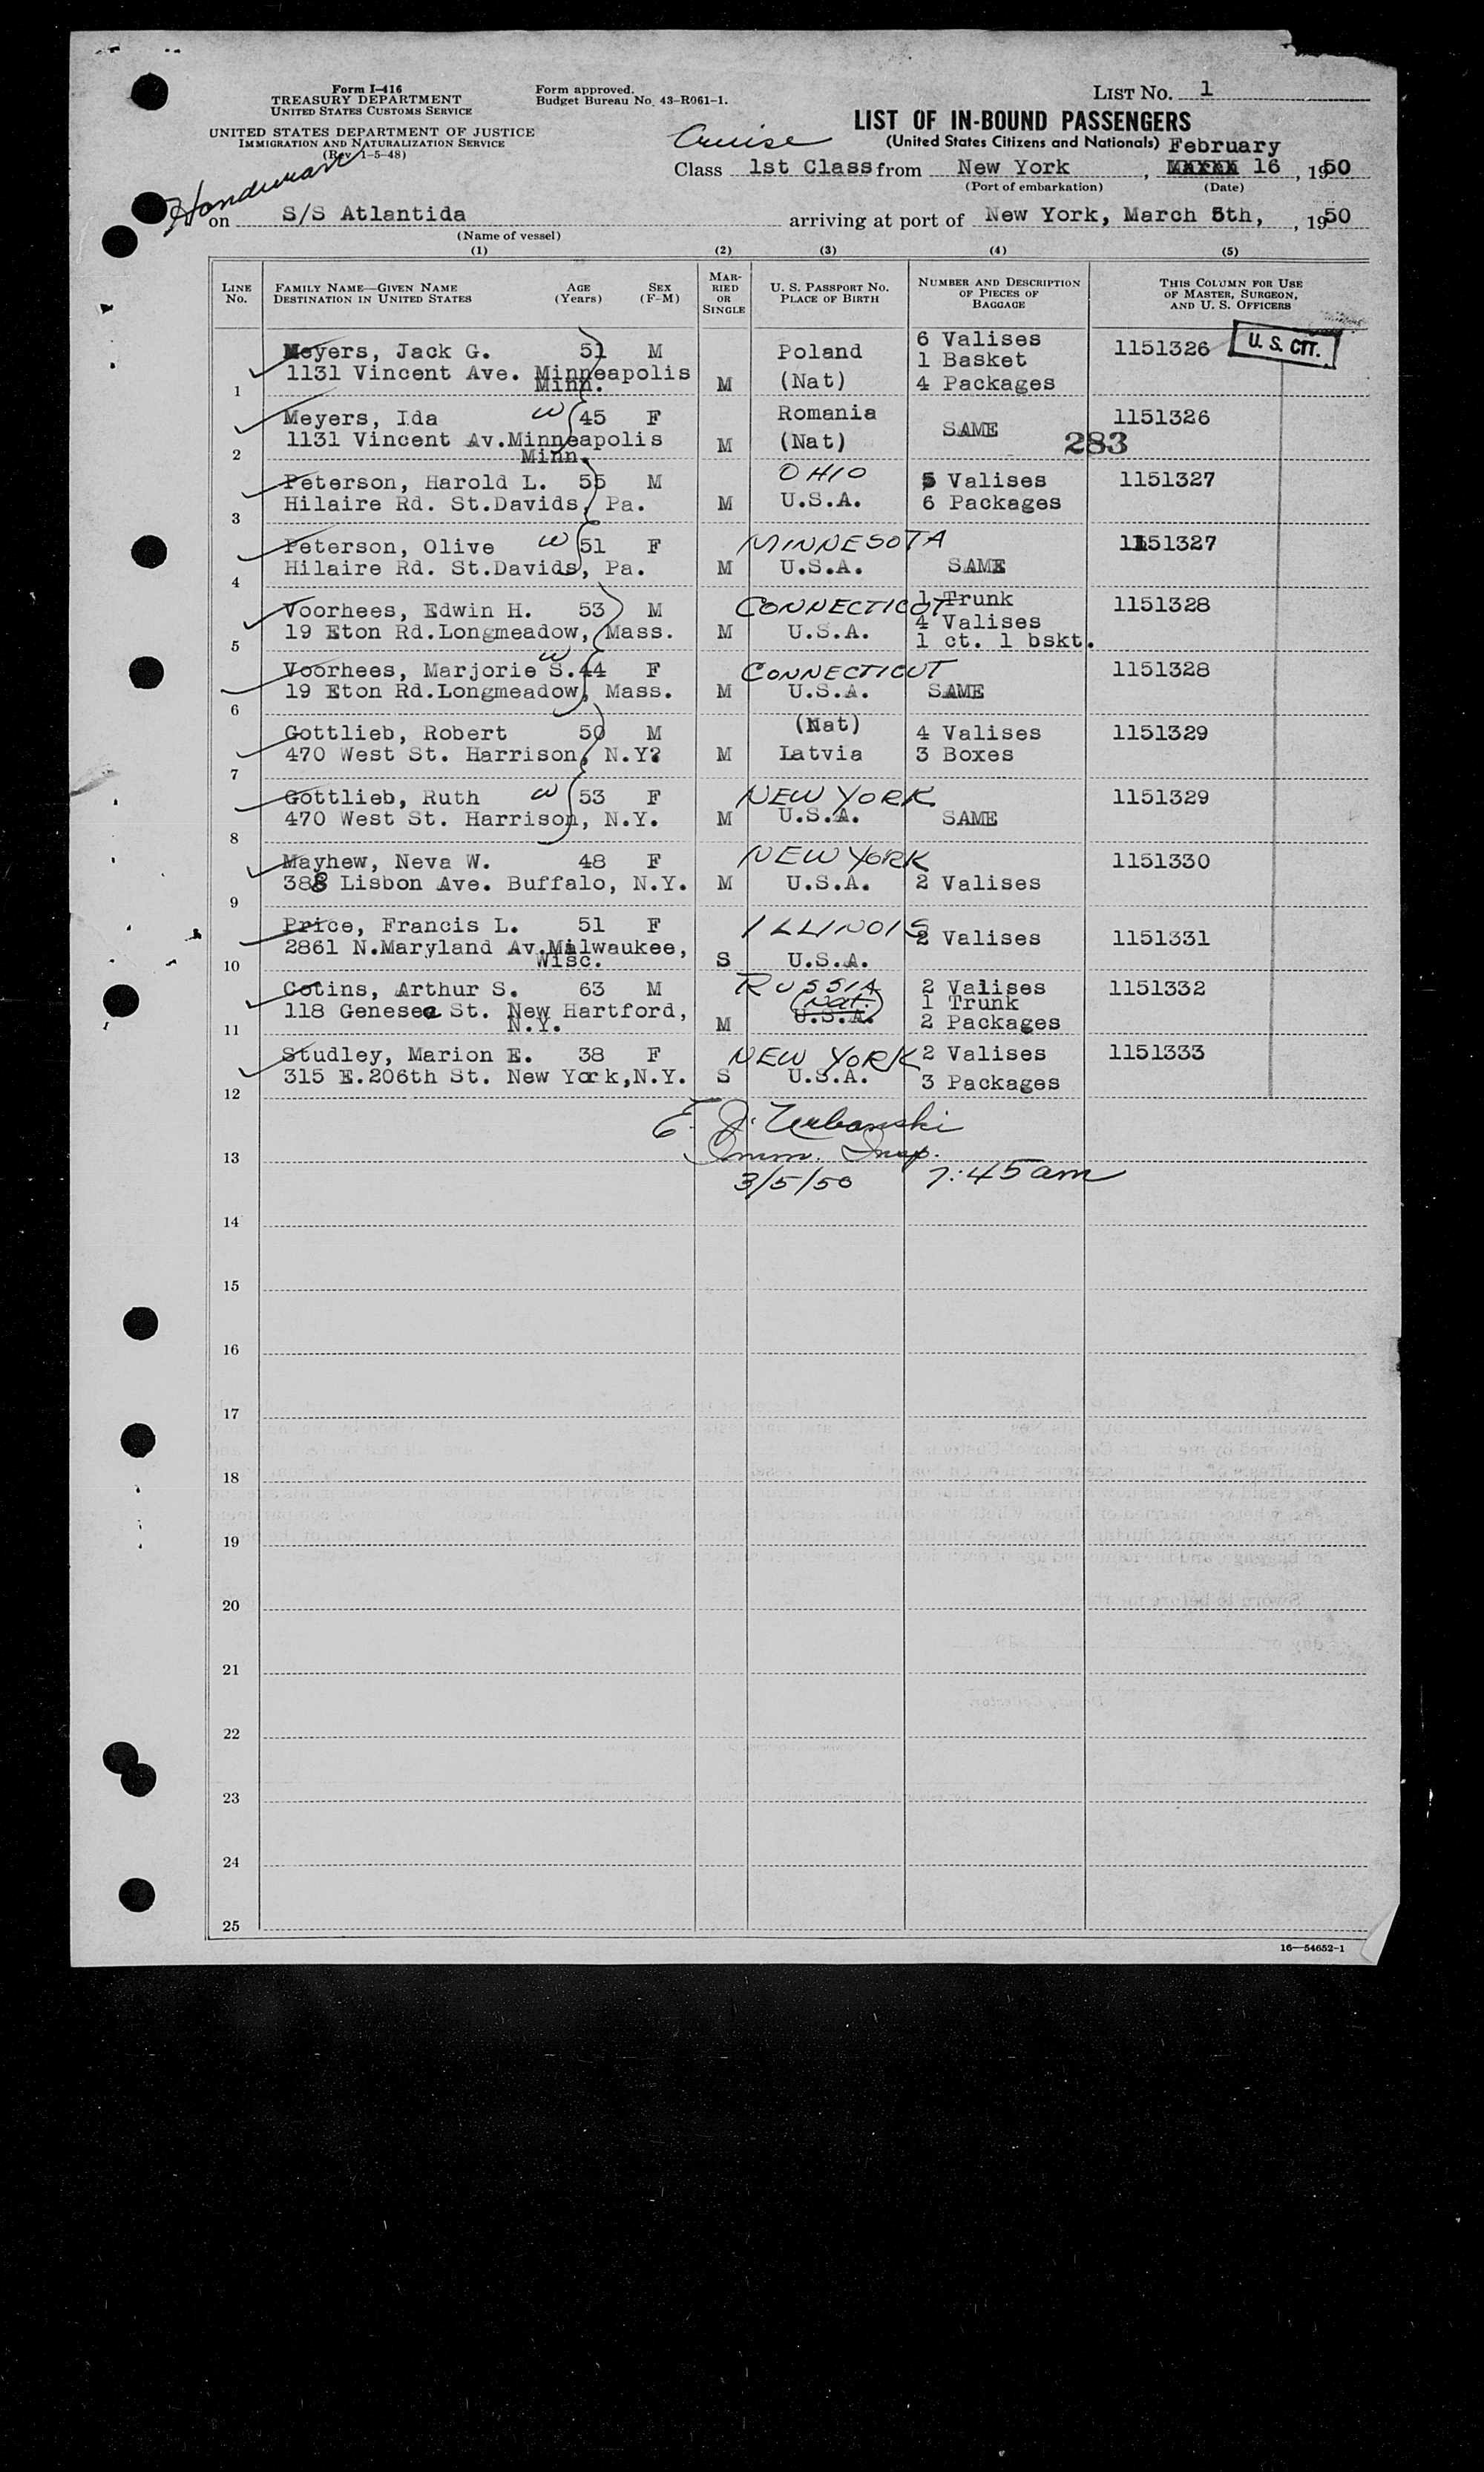 Form I-416
TREASURY DEPARTMENT
UNITED STATES CUSTOMS SERVICE
UNITED STATES DEPARTMENT OF JUSTICE
IMMIGRATION AND NATURALIZATION SERVICE
(Rev. 1-5-48)
Form approved.
Budget Bureau No. 43-R061-1.
LIST No. 1
LIST OF IN-BOUND PASSENGERS
(United States Citizens and Nationals) February
Cruise
Class 1st Class from New York, 16, 1950
(Port of embarkation) (Date)
Honduran
on S/S Atlantida arriving at port of New York, March 5th, , 1950
(Name of vessel)
(1) (2) (3) (4) (5)
LINE No. FAMILY NAME—GIVEN NAME DESTINATION IN UNITED STATES AGE (Years) SEX (F-M) MARRIED OR SINGLE U. S. PASSPORT NO. PLACE OF BIRTH NUMBER AND DESCRIPTION OF PIECES OF BAGGAGE THIS COLUMN FOR USE OF MASTER, SURGEON, AND U. S. OFFICERS
U. S. CIT.
1 Meyers, Jack G. 51 M Poland 6 Valises 1151326
1 Basket
1131 Vincent Ave. Minneapolis M (Nat) 4 Packages
Minn.
2 Meyers, Ida W 45 F Romania SAME 1151326
1131 Vincent Av.Minneapolis M (Nat) 283
Minn.
3 Peterson, Harold L. 55 M OHIO 5 Valises 1151327
Hilaire Rd. St.Davids, Pa. M U.S.A. 6 Packages
4 Peterson, Olive W 51 F MINNESOTA 1151327
Hilaire Rd. St.Davids, Pa. M U.S.A. SAME
5 Voorhees, Edwin H. 53 M CONNECTICUT 1 Trunk 1151328
4 Valises
19 Eton Rd.Longmeadow, Mass. M U.S.A. 1 ct. 1 bskt.
6 Voorhees, Marjorie S. W 44 F CONNECTICUT 1151328
19 Eton Rd.Longmeadow, Mass. M U.S.A. SAME
7 Gottlieb, Robert 50 M (Nat) 4 Valises 1151329
470 West St. Harrison, N.Y. M Latvia 3 Boxes
8 Gottlieb, Ruth W 53 F NEW YORK 1151329
470 West St. Harrison, N.Y. M U.S.A. SAME
9 Mayhew, Neva W. 48 F NEW YORK 1151330
388 Lisbon Ave. Buffalo, N.Y. M U.S.A. 2 Valises
10 Price, Francis L. 51 F ILLINOIS 2 Valises 1151331
2861 N.Maryland Av.Milwaukee,
Wisc. S U.S.A.
11 Cotins, Arthur S. 63 M RUSSIA 2 Valises 1151332
(Nat.) 1 Trunk
118 Genesee St. New Hartford, U.S.A.
N.Y. M 2 Packages
12 Studley, Marion E. 38 F NEW YORK 2 Valises 1151333
315 E.206th St. New York,N.Y. S U.S.A. 3 Packages
E. J. Urbanski
13 Imm. Insp.
3/5/50 7:45 am
14
15
16
17
18
19
20
21
22
23
24
25
16—54652-1